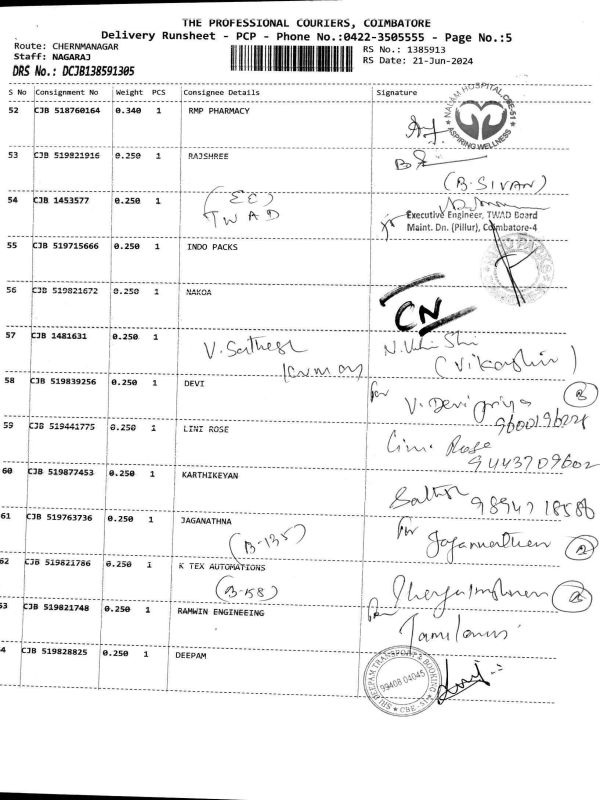 THE PROFESSIONAL COURIERS, COIMBATORE
Delivery Runsheet - PCP - Phone No.:0422-3505555 - Page No.:5
Route: CHERNMANAGAR
Staff: NAGARAJ
DRS No.: DCJB138591305
RS No.: 1385913
RS Date: 21-Jun-2024
S No Consignment No Weight PCS Consignee Details Signature
52 CJB 518760164 0.340 1 RMP PHARMACY
NALAM HOSPITAL CBE-51
ASPIRING WELLNESS
53 CJB 519821916 0.250 1 RAJSHREE
(B. SIVAN)
54 CJB 1453577 0.250 1 (EE)
TWAD
Executive Engineer, TWAD Board
Maint. Dn. (Pillur), Coimbatore-4
55 CJB 519715666 0.250 1 INDO PACKS
56 CJB 519821672 0.250 1 NAKOA
CN
57 CJB 1481631 0.250 1 V. Sathesh
58 CJB 519839256 0.250 1 DEVI
for V. Devi priya
9600196228
59 CJB 519441775 0.250 1 LINI ROSE
Lini Rose
9443709602
60 CJB 519877453 0.250 1 KARTHIKEYAN
61 CJB 519763736 0.250 1 JAGANATHNA
(B-135)
for Jagannathan
62 CJB 519821786 0.250 1 K TEX AUTOMATIONS
(B-158)
63 CJB 519821748 0.250 1 RAMWIN ENGINEEING
64 CJB 519828825 0.250 1 DEEPAM
SRI DEEPAM TRANSPORT & BOOKING
99408 04045
CBE-51